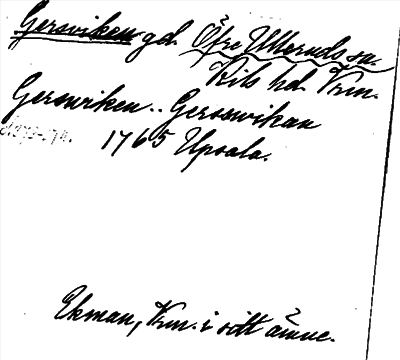 Gersviken gd. Öfre Ulleruds sn.
Kils hd. Vrm.
Gerswiken .. Gersswikan
1765 Upsala.
Ekman, Vrm. i sitt ämne.